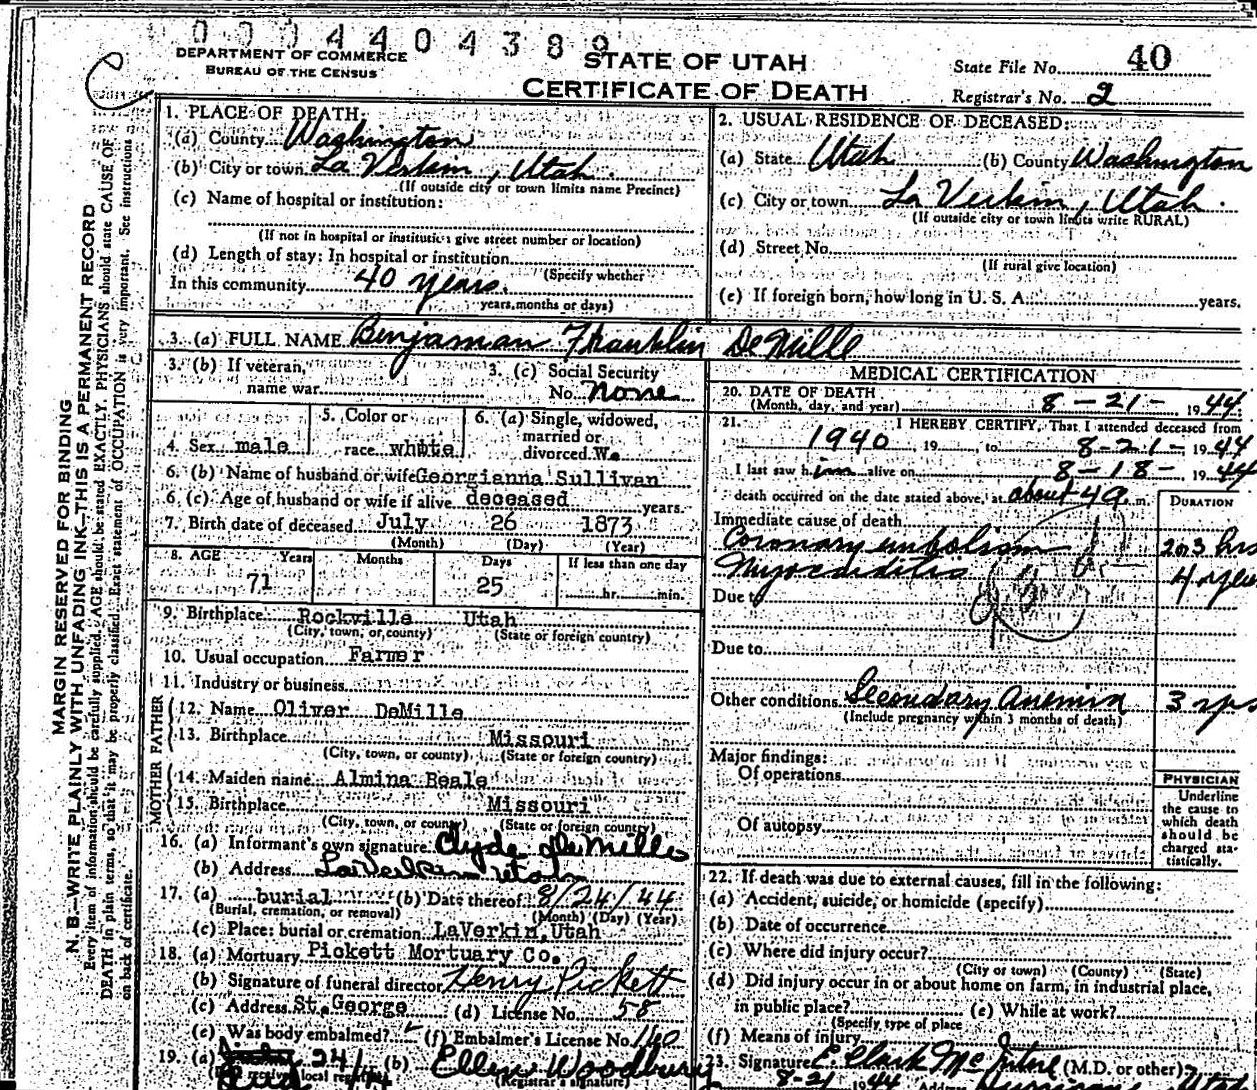 0004404389
DEPARTMENT OF COMMERCE
BUREAU OF THE CENSUS
STATE OF UTAH
CERTIFICATE OF DEATH
State File No. 40
Registrar's No. 2
MARGIN RESERVED FOR BINDING
N. B.—WRITE PLAINLY WITH UNFADING INK—THIS IS A PERMANENT RECORD
Every item of information should be carefully supplied. AGE should be stated EXACTLY. PHYSICIANS should state CAUSE OF
DEATH in plain terms, so that it may be properly classified. Exact statement of OCCUPATION is very important. See instructions
on back of certificate.
1. PLACE OF DEATH:
(a) County Washington
(b) City or town La Verkin, Utah
(If outside city or town limits name Precinct)
(c) Name of hospital or institution:
(If not in hospital or institution give street number or location)
(d) Length of stay: In hospital or institution
(Specify whether
In this community 40 years.
years, months or days)
2. USUAL RESIDENCE OF DECEASED:
(a) State Utah (b) County Washington
(c) City or town La Verkin, Utah.
(If outside city or town limits write RURAL)
(d) Street No.
(If rural give location)
(e) If foreign born, how long in U. S. A. years.
3. (a) FULL NAME Benjaman Franklin DeMille
3. (b) If veteran, name war
3. (c) Social Security No. none
4. Sex male
5. Color or race white
6. (a) Single, widowed, married or divorced W.
6. (b) Name of husband or wife Georgianna Sullivan
6. (c) Age of husband or wife if alive deceased years.
7. Birth date of deceased July 26 1873
(Month) (Day) (Year)
8. AGE Years Months Days If less than one day
71 25 hr. min.
9. Birthplace Rockville Utah
(City, town, or county) (State or foreign country)
10. Usual occupation Farmer
11. Industry or business
FATHER
12. Name Oliver DeMille
13. Birthplace Missouri
(City, town, or county) (State or foreign country)
MOTHER
14. Maiden name Almina Beale
15. Birthplace Missouri
(City, town, or county) (State or foreign country)
16. (a) Informant's own signature Clyde DeMille
(b) Address LaVerkin Utah
17. (a) burial (b) Date thereof 8/24/44
(Burial, cremation, or removal) (Month) (Day) (Year)
(c) Place: burial or cremation LaVerkin, Utah
18. (a) Mortuary Pickett Mortuary Co.
(b) Signature of funeral director Henry Pickett
(c) Address St. George (d) License No. 58
(e) Was body embalmed? (f) Embalmer's License No. 140
19. (a) Aug 24/44 (b) Ellen Woodbury
(Registrar's signature)
MEDICAL CERTIFICATION
20. DATE OF DEATH
(Month, day, and year) 8-21- 1944
21. I HEREBY CERTIFY, That I attended deceased from
1940, 19 to 8-21- 1944
I last saw him alive on 8-18- 1944
death occurred on the date stated above, at about 4 a.m.
DURATION
Immediate cause of death
Coronary embolism 2 or 3 hrs
Myocarditis 4 yrs
Due to
Due to
Other conditions Secondary anemia 3 yrs
(Include pregnancy within 3 months of death)
Major findings:
Of operations
Of autopsy
PHYSICIAN
Underline
the cause to
which death
should be
charged sta-
tistically.
22. If death was due to external causes, fill in the following:
(a) Accident, suicide, or homicide (specify)
(b) Date of occurrence
(c) Where did injury occur?
(City or town) (County) (State)
(d) Did injury occur in or about home on farm, in industrial place,
in public place? (e) While at work?
(Specify type of place
(f) Means of injury
23. Signature E Clark McIntire (M.D. or other)
8-21 1944 Address